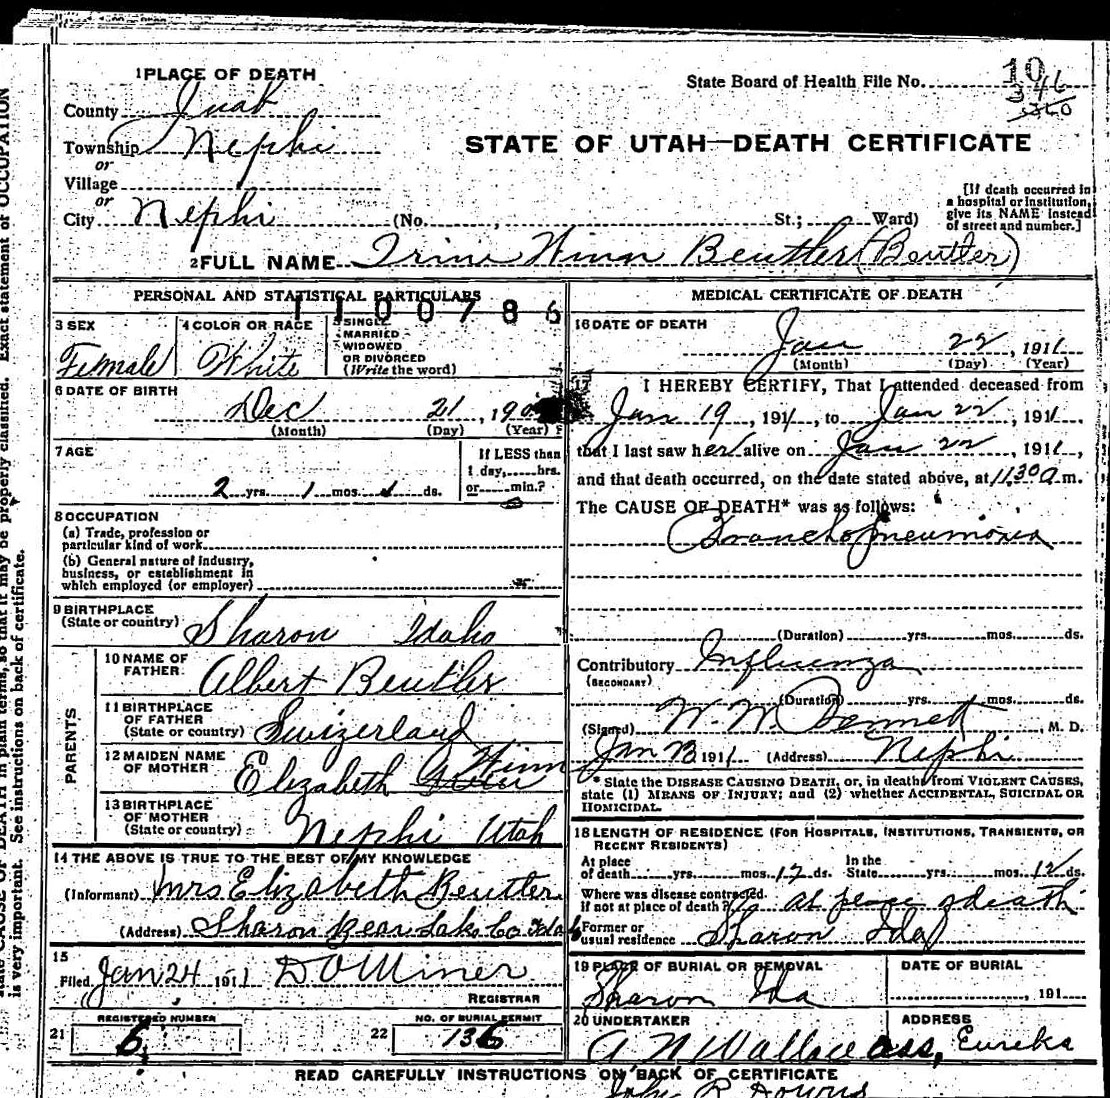 1 PLACE OF DEATH
State Board of Health File No. 10
346
County Juab
Township Nephi
STATE OF UTAH—DEATH CERTIFICATE
or
Village
or
City Nephi (No. , St.; Ward)
[If death occurred in
a hospital or institution,
give its NAME instead
of street and number.]
2 FULL NAME Trine Winn Beuttler (Beutler)
PERSONAL AND STATISTICAL PARTICULARS
1100786
3 SEX
Female
4 COLOR OR RACE
White
5 SINGLE
MARRIED
WIDOWED
OR DIVORCED
(Write the word)
6 DATE OF BIRTH
Dec 21, 190
(Month) (Day) (Year)
7 AGE
2 yrs. 1 mos. 1 ds.
If LESS than
1 day,......hrs.
or......min.?
8 OCCUPATION
(a) Trade, profession or
particular kind of work
(b) General nature of industry,
business, or establishment in
which employed (or employer)
9 BIRTHPLACE
(State or country) Sharon Idaho
PARENTS
10 NAME OF
FATHER Albert Beutler
11 BIRTHPLACE
OF FATHER
(State or country) Swizerland
12 MAIDEN NAME
OF MOTHER Elizabeth Winn
13 BIRTHPLACE
OF MOTHER
(State or country) Nephi Utah
14 THE ABOVE IS TRUE TO THE BEST OF MY KNOWLEDGE
(Informant) Mrs Elizabeth Beutler
(Address) Sharon Bear Lake Co Ida
15
Filed Jan 24 1911 D O Miner
REGISTRAR
21 REGISTERED NUMBER
6
22 NO. OF BURIAL PERMIT
136
MEDICAL CERTIFICATE OF DEATH
16 DATE OF DEATH
Jan 22, 1911
(Month) (Day) (Year)
17
I HEREBY CERTIFY, That I attended deceased from
Jan 19, 1911, to Jan 22, 1911
that I last saw her alive on Jan 22, 1911,
and that death occurred, on the date stated above, at 11.30 a m.
The CAUSE OF DEATH* was as follows:
Broncho pneumonia
(Duration) yrs. mos. ds.
Contributory Influenza
(SECONDARY)
(Duration) yrs. mos. ds.
(Signed) W. W. Bennett, M. D.
Jan 23 1911 (Address) Nephi
*State the DISEASE CAUSING DEATH, or, in deaths from VIOLENT CAUSES,
state (1) MEANS OF INJURY; and (2) whether ACCIDENTAL, SUICIDAL OR
HOMICIDAL.
18 LENGTH OF RESIDENCE (FOR HOSPITALS, INSTITUTIONS, TRANSIENTS, OR
RECENT RESIDENTS)
At place
of death yrs. mos. 12 ds.
In the
State yrs. mos. 12 ds.
Where was disease contracted
if not at place of death? at place of death
Former or
usual residence Sharon Ida
19 PLACE OF BURIAL OR REMOVAL
Sharon Ida
DATE OF BURIAL
, 191
20 UNDERTAKER
A N Wallace ass,
ADDRESS
Eureka
READ CAREFULLY INSTRUCTIONS ON BACK OF CERTIFICATE
John R Downs
state CAUSE OF DEATH in plain terms, so that it may be properly classified. Exact statement of OCCUPATION
is very important. See instructions on back of certificate.